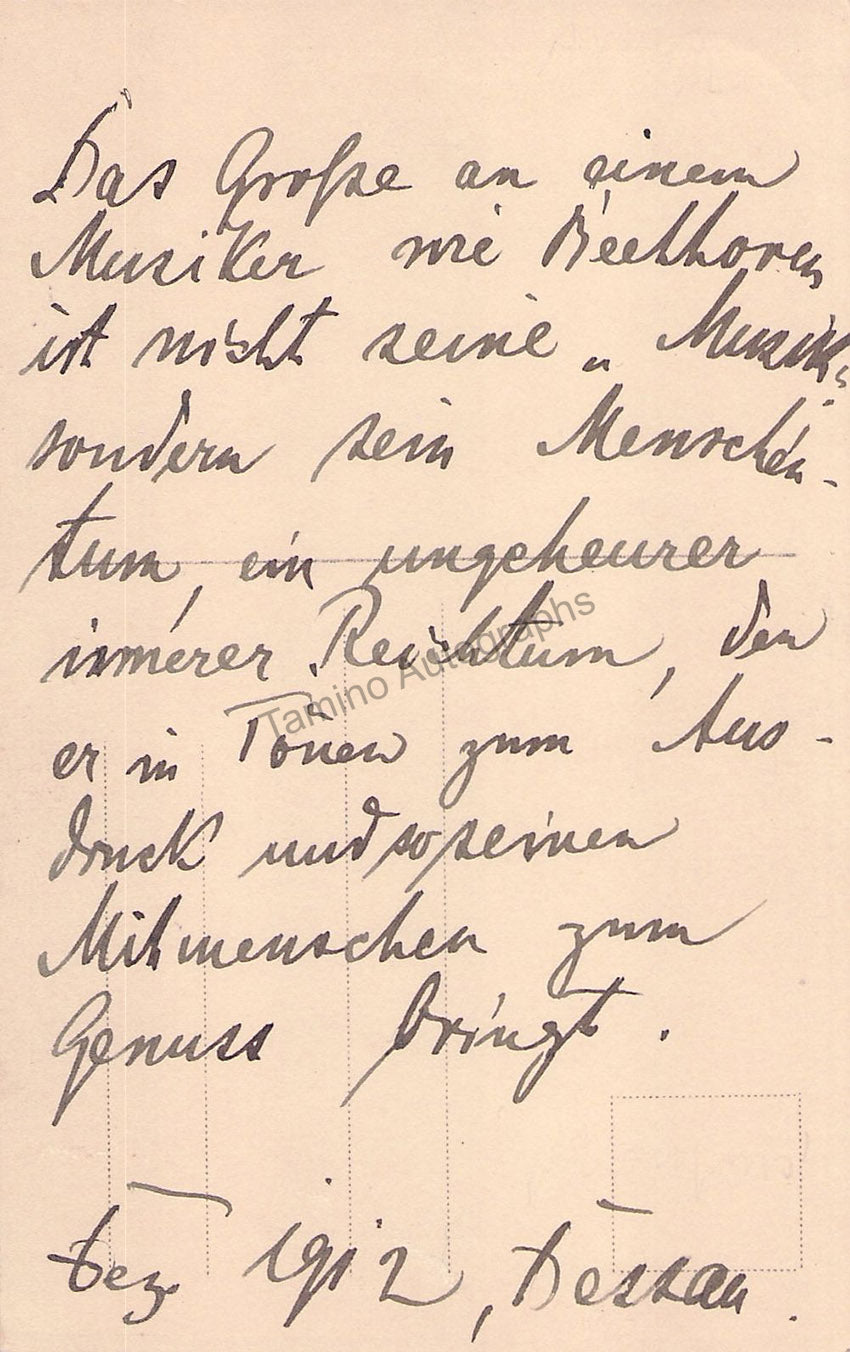 Das Große an einem
Musiker wie Beethoven
ist nicht seine „Musik“
sondern sein Menschen-
tum, ein ungeheurer
innerer Reichtum, den
er in Tönen zum Aus-
druck und so seinen
Mitmenschen zum
Genuss bringt.
Dez. 1912, Dessau.
Tamino Autographs